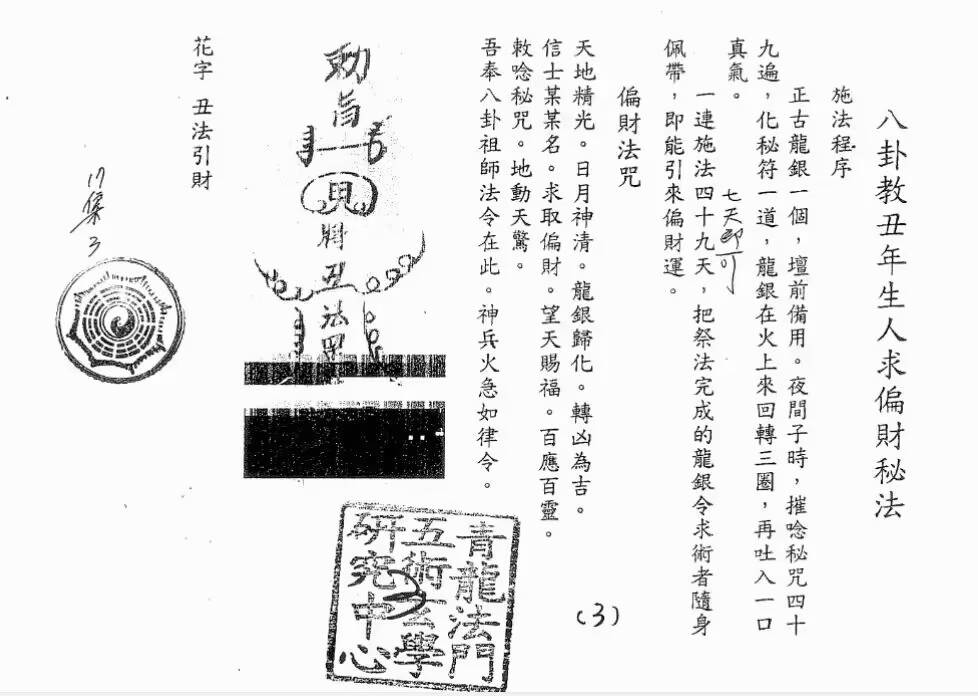 八卦教丑年生人求偏財秘法
施法程序
正古龍銀一個，壇前備用。夜間子時，摧唸秘咒四十
九遍，化秘符一道，龍銀在火上來回轉三圈，再吐入一口
真氣。
七天即可
一連施法四十九天，把祭法完成的龍銀令求術者隨身
佩帶，即能引來偏財運。
偏財法咒
天地精光。日月神清。龍銀歸化。轉凶為吉。
信士某某名。求取偏財。望天賜福。百應百靈。
敕唸秘咒。地動天驚。
吾奉八卦祖師法令在此。神兵火急如律令。
將丑法
花字 丑法引財
集3
青龍法門
五術玄學
研究中心
(3)